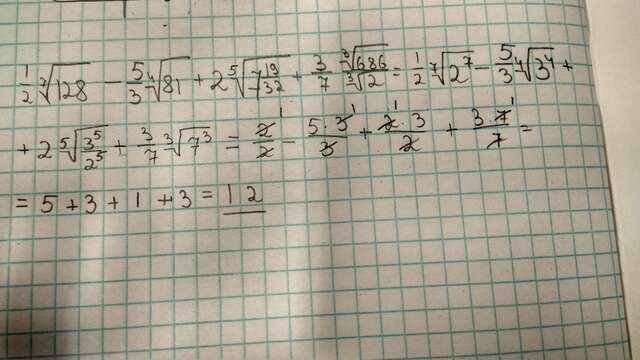 1/2 ⁷√128 − 5/3 ⁴√81 + 2 ⁵√(7 19/32) + 3/7 ³√686/³√2 = 1/2 ⁷√2⁷ − 5/3 ⁴√3⁴ +
+ 2 ⁵√(3⁵/2⁵) + 3/7 ³√7³ = 2/2 − 5·3/3 + 2·3/2 + 3·7/7 =
= 5 + 3 + 1 + 3 = 12